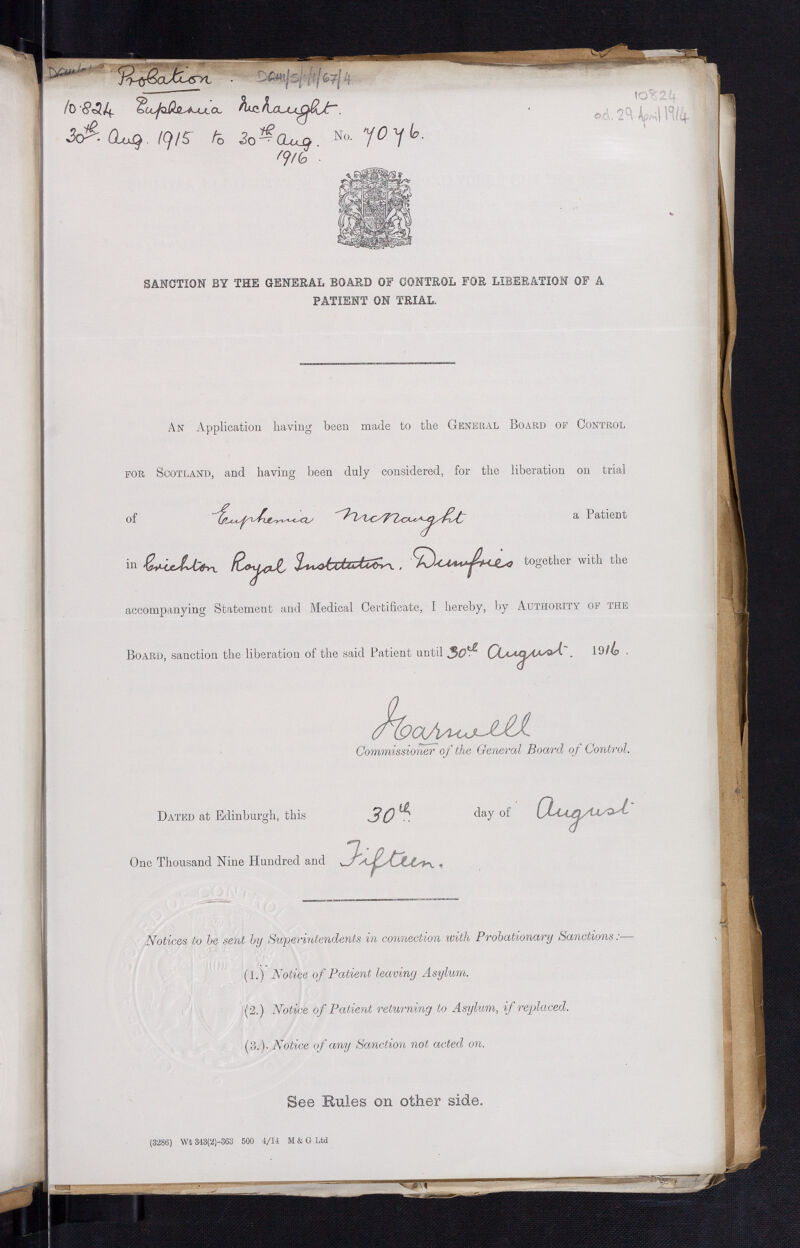 Probation. DGH1/5/1/1/67/4
10824
10.824 Euphemia McNaught.
ad. 29 April 1914
30th. Aug. 1915 to 30th Aug. 1916.
No. 7076.
SANCTION BY THE GENERAL BOARD OF CONTROL FOR LIBERATION OF A
PATIENT ON TRIAL.
AN Application having been made to the GENERAL BOARD OF CONTROL
FOR SCOTLAND, and having been duly considered, for the liberation on trial
of Euphemia McNaught a Patient
in Crichton Royal Institution. Dumfries together with the
accompanying Statement and Medical Certificate, I hereby, by AUTHORITY OF THE
BOARD, sanction the liberation of the said Patient until 30th August. 1916.
Commissioner of the General Board of Control.
DATED at Edinburgh, this 30th day of August
One Thousand Nine Hundred and Fifteen.
Notices to be sent by Superintendents in connection with Probationary Sanctions:—
(1.) Notice of Patient leaving Asylum.
(2.) Notice of Patient returning to Asylum, if replaced.
(3.) Notice of any Sanction not acted on.
See Rules on other side.
(3286) Wt 343(2)-363 500 4/14 M & G Ltd